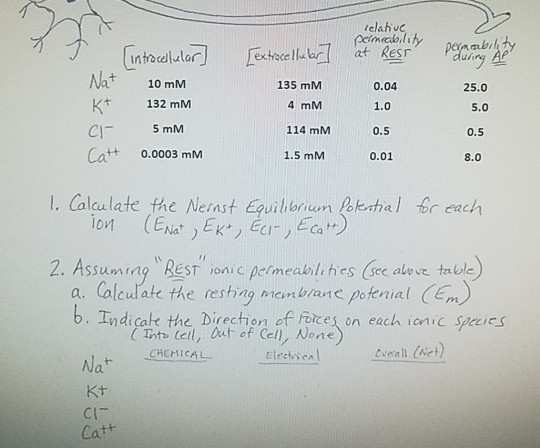 relative
permeability
at REST
permeability
during AP
[intracellular] [extracellular]
Na+ 10 mM 135 mM 0.04 25.0
K+ 132 mM 4 mM 1.0 5.0
Cl- 5 mM 114 mM 0.5 0.5
Ca++ 0.0003 mM 1.5 mM 0.01 8.0
1. Calculate the Nernst Equilibrium Potential for each
ion (ENa+, EK+, ECl-, ECa++)
2. Assuming "REST" ionic permeabilities (see above table)
a. Calculate the resting membrane potenial (Em)
b. Indicate the Direction of Forces on each ionic species
(Into Cell, Out of Cell, None)
CHEMICAL Electrical Overall (Net)
Na+
K+
Cl-
Ca++